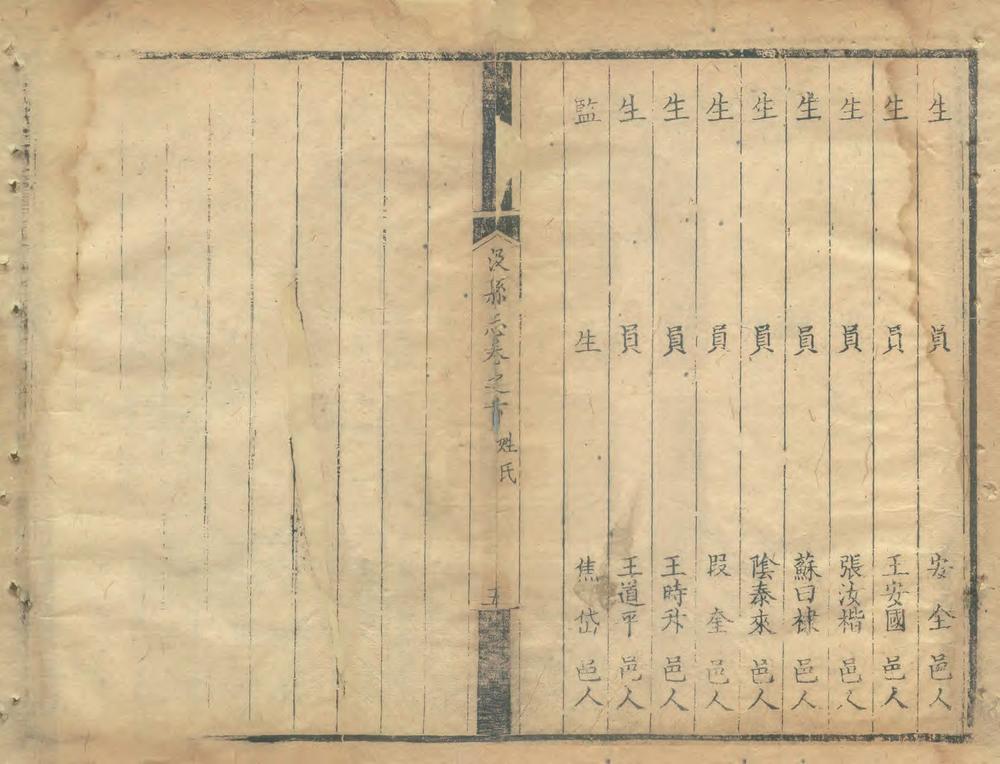 生員安全邑人
生員王安國邑人
生員張汝楷邑人
生員蘇曰棣邑人
生員陰泰來邑人
生員段奎邑人
生員王時升邑人
生員王道平邑人
監生焦岱邑人
縣志卷之 姓氏 五